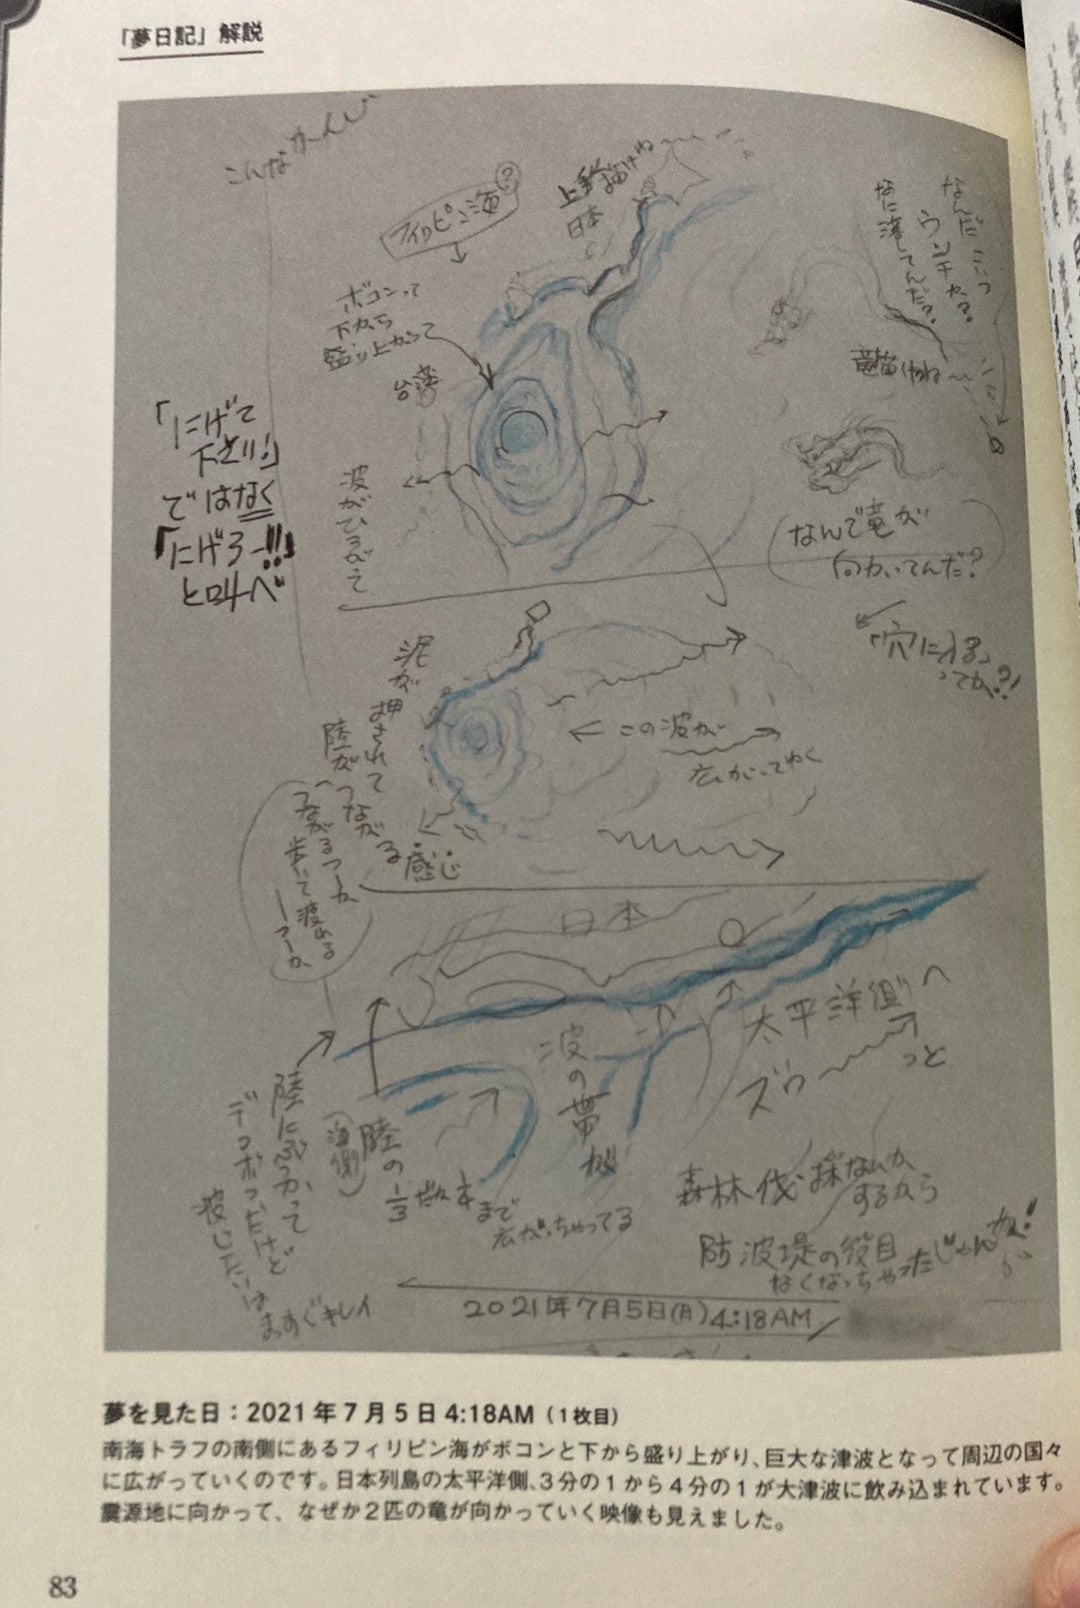 「夢日記」解説
こんなかんじ
フィリピン海?
上手く描けね
日本
ボコンって
下から
盛り上がって
台湾
波がひろがって
「にげて
下さい!」
ではなく
「にげろー!!」
と叫べ
なんだ こいつ
なに
竜描けね
なんで竜が
向かいてんだ?
「穴に入る」
ってか?!
泥が押されて
陸がつながる感じ
つながるつーか
歩いて渡れる
つーか
この波が
広がってゆく
日本
太平洋側へ
ズゥーっと
波の帯が
陸にぶつかって
デコボコだけど
波じたいは
まっすぐキレイ
(海側)
陸の1/3
まで
広がっちゃってる
森林伐採なんか
するから
防波堤の役目
なくなっちゃったじゃんか!
2021年7月5日(月)4:18AM
夢を見た日:2021年7月5日4:18AM(1枚目)
南海トラフの南側にあるフィリピン海がボコンと下から盛り上がり、巨大な津波となって周辺の国々
に広がっていくのです。日本列島の太平洋側、3分の1から4分の1が大津波に飲み込まれています。
震源地に向かって、なぜか2匹の竜が向かっていく映像も見えました。
83